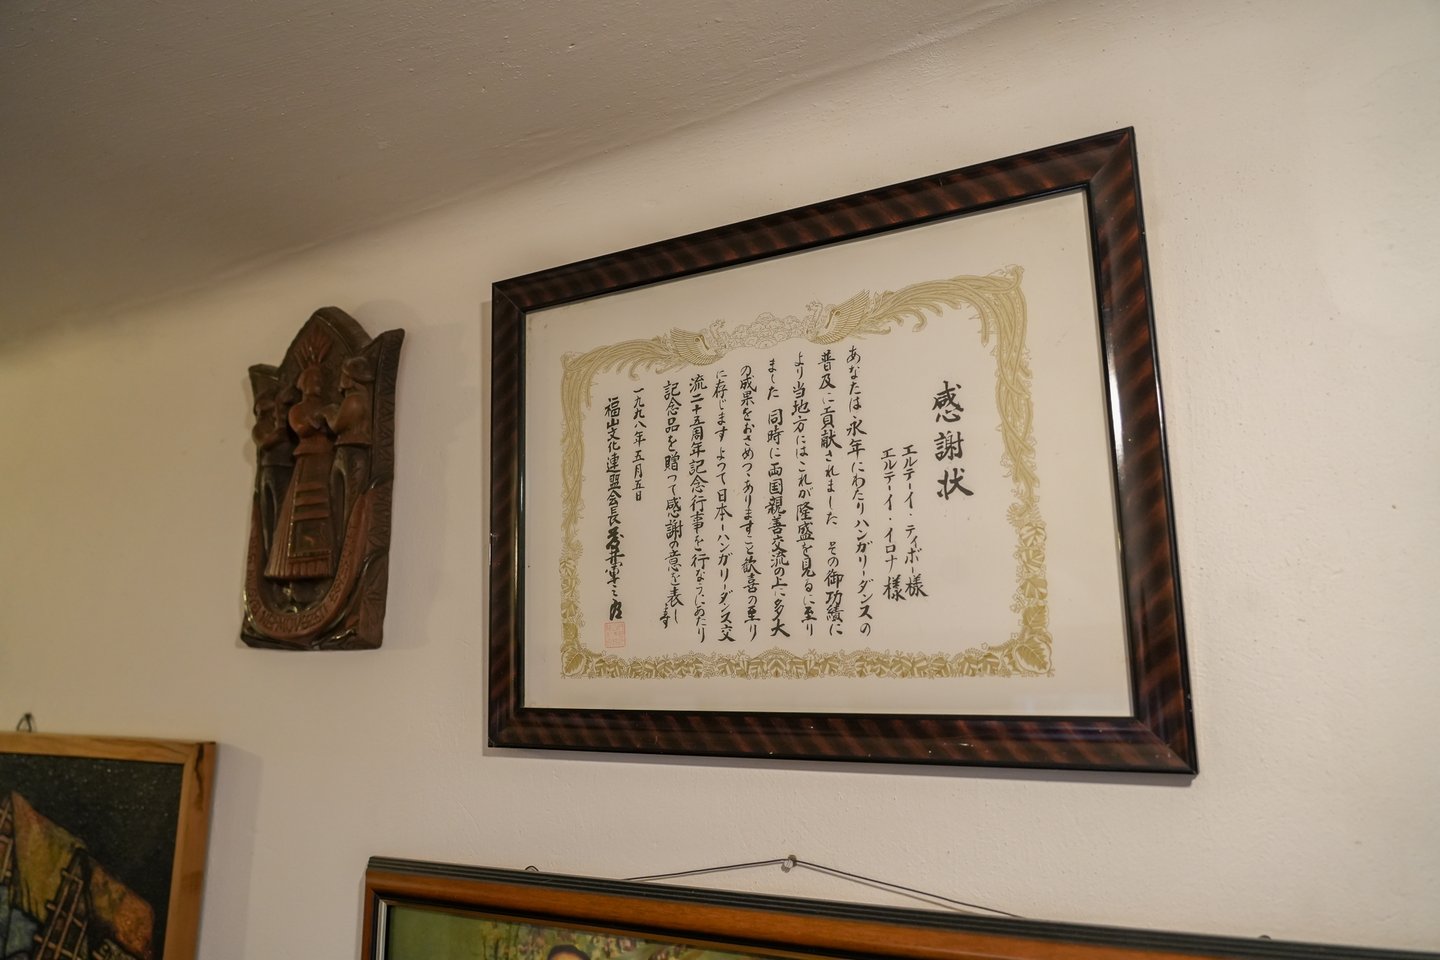 感謝状
エルテーイ・ティボー様
エルテーイ・イロナ様
あなたは永年にわたりハンガリーダンスの
普及に貢献されました その御功績に
より当地方にはこれが隆盛を見るに至り
ました 同時に両国親善交流の上に多大
の成果をおさめつつありますこと歓喜の至り
に存じます よって日本ハンガリーダンス交
流二十五周年記念行事を行なうにあたり
記念品を贈って感謝の意を表します
一九九八年五月五日
福山文化連盟会長